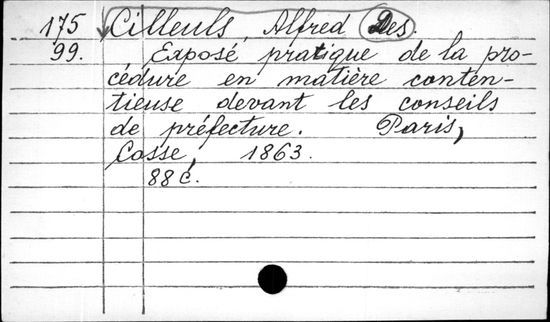 175 Cilleuls, Alfred Des.
99. Exposé pratique de la pro-
cédure en matière conten-
tieuse devant les conseils
de préfecture. Paris,
Cosse, 1863.
88 с.